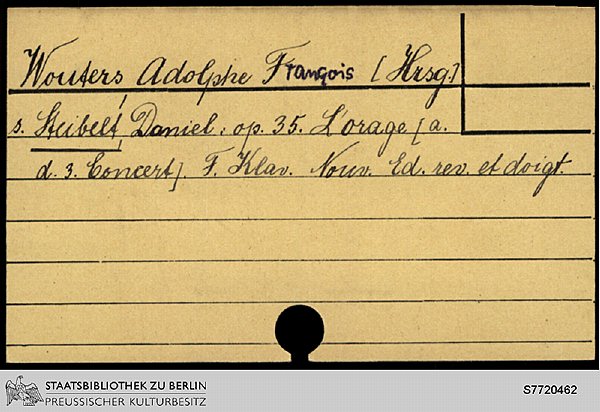 Wouters Adolphe François [Hrsg.]
s. Steibelt, Daniel: op. 35. L'orage [a.
d. 3. Concert]. F. Klav. Nouv. Ed. rev. et doigt.
STAATSBIBLIOTHEK ZU BERLIN
PREUSSISCHER KULTURBESITZ
S7720462